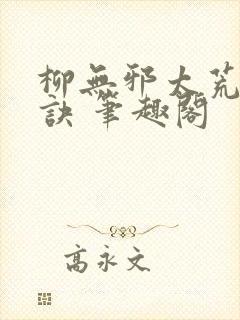 柳無邪太荒
訣 筆趣閣
高永文